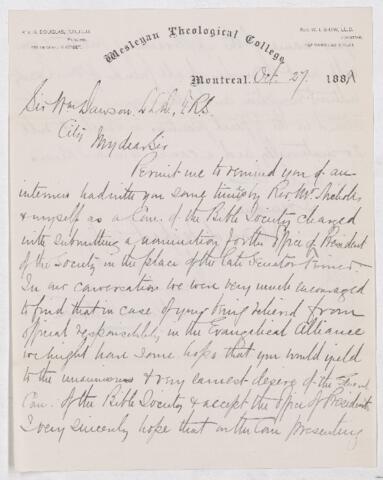 REV. G. DOUGLAS, LL.D.
REV. W. I. SHAW, LL.D.
Wesleyan Theological College,
Montreal, Oct. 27 188
Sir Wm Dawson LL.D., F.R.S.
City My dear Sir
Permit me to remind you of an
interview had with you some time by Rev. Mr. Nichols
& myself as a Com. of the Bible Society charged
with submitting a nomination for the Office of President
of the Society in the place of the late Senator Ferrier.
In our conversation we were very much encouraged
to find that in case of your being relieved from
official responsibility in the Evangelical Alliance
we might have some hope that you would yield
to the unanimous & very earnest desire of the
Com. of the Bible Society & accept the Office of President.
I very sincerely hope that on the Com. presenting